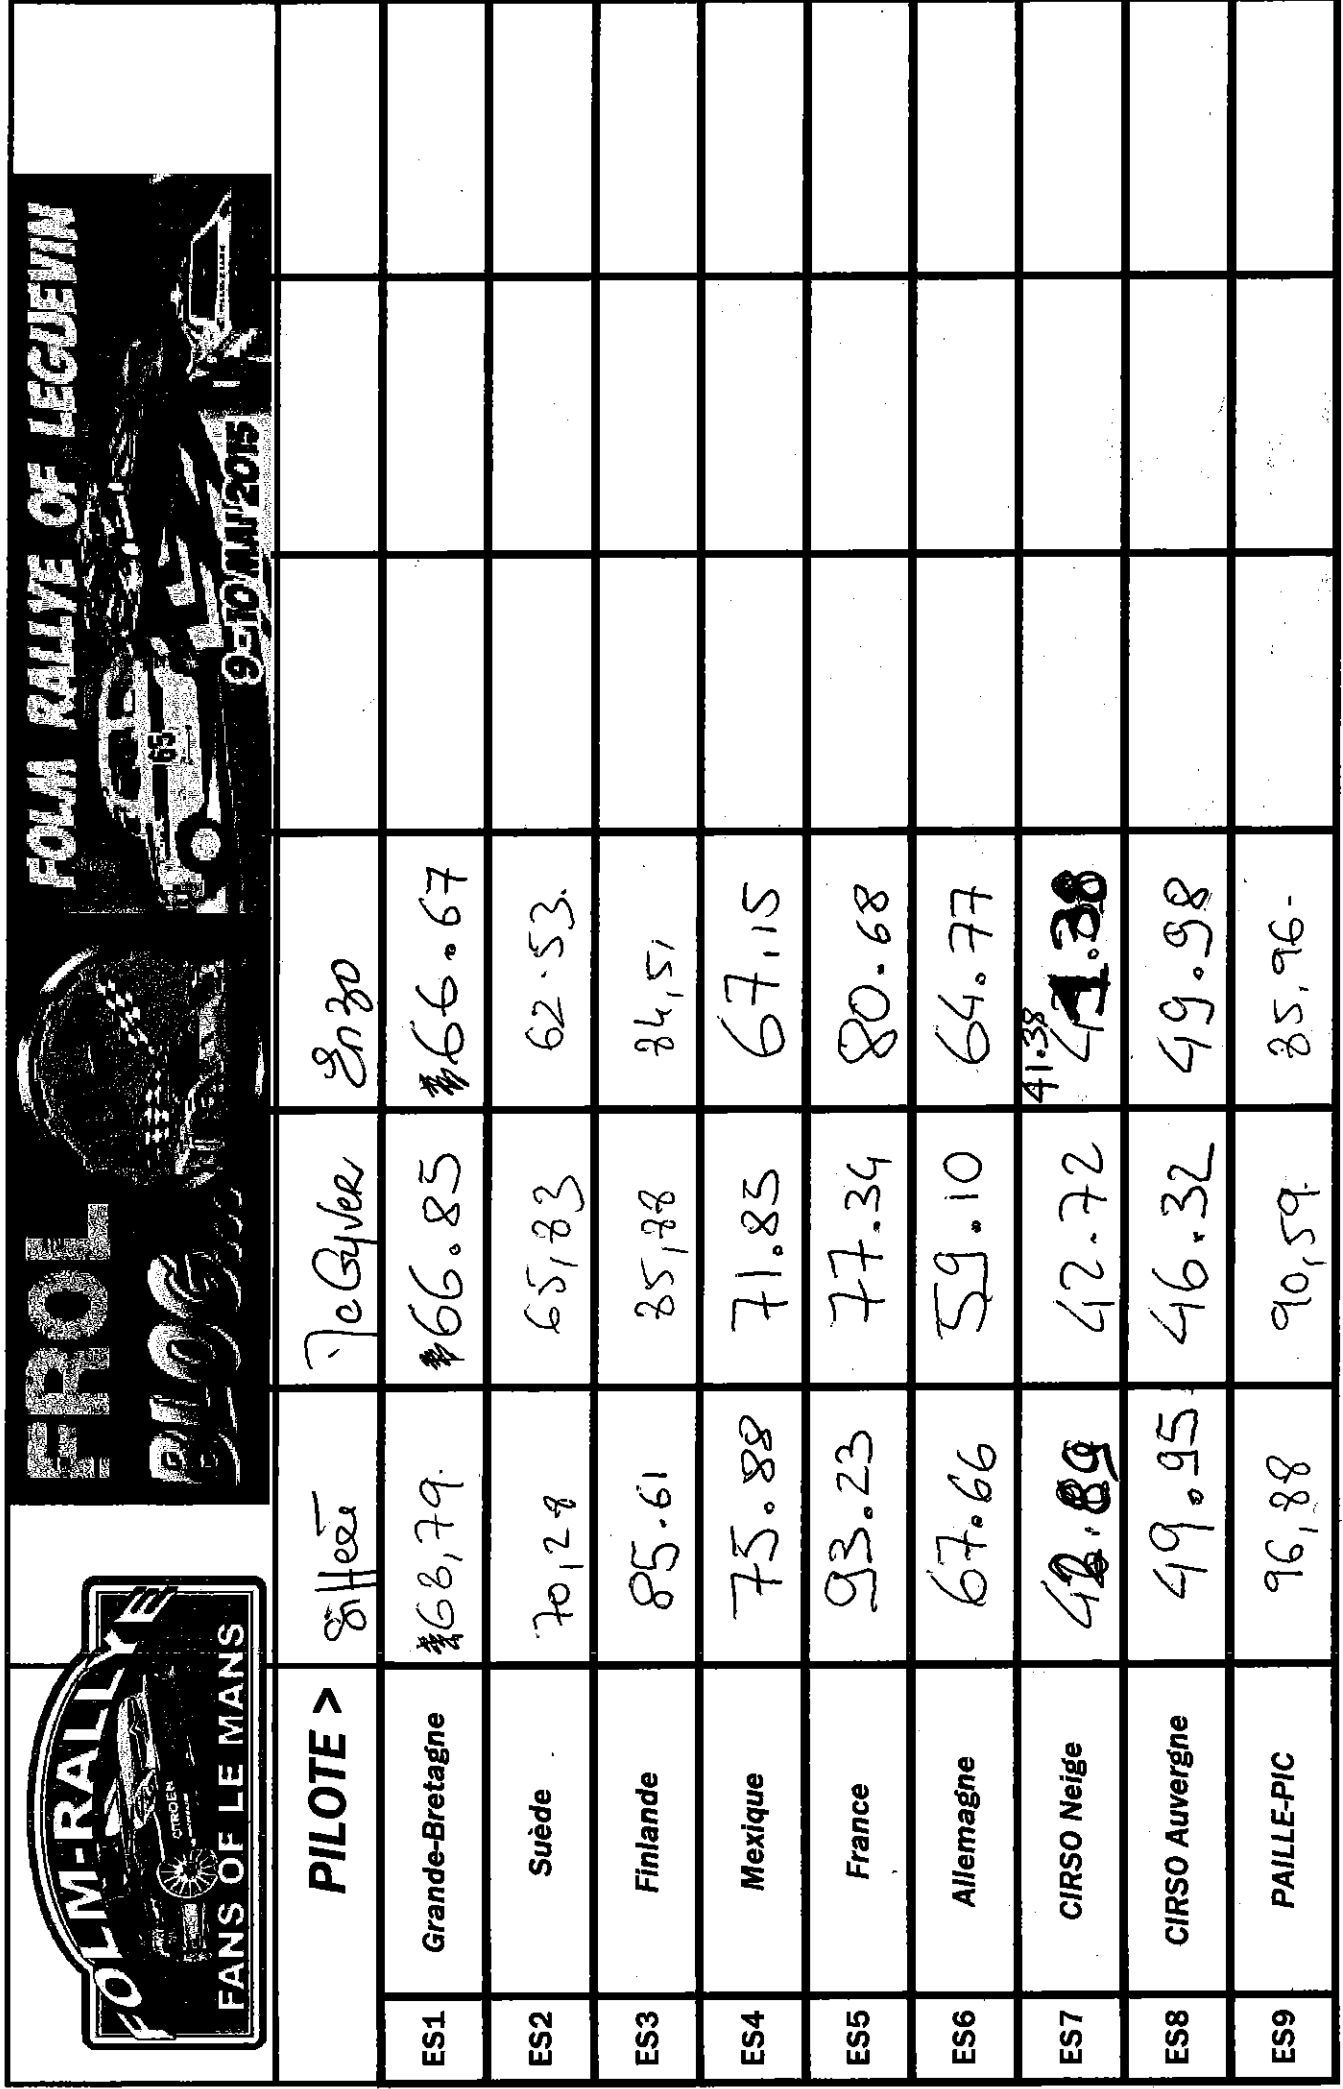 FOLM-RALLYE
FANS OF LE MANS
CITROEN
FROL
BLOG...
FOLM RALLYE OF LEGUEVIN
65
9-10 MAI 2015
PILOTE > McGyver Enzo
ES1 Grande-Bretagne 68,79. 66.85 66.67
ES2 Suède 70,28 65,83 62.53.
ES3 Finlande 85.61 85,88 84,51
ES4 Mexique 75.88 71.85 67,15
ES5 France 93.23 77.34 80.68
ES6 Allemagne 67.66 59.10 64.77
ES7 CIRSO Neige 42.89 42.72 41.38 41.38
ES8 CIRSO Auvergne 49.95 46.32 49.98
ES9 PAILLE-PIC 96,88 90,59. 85,96-